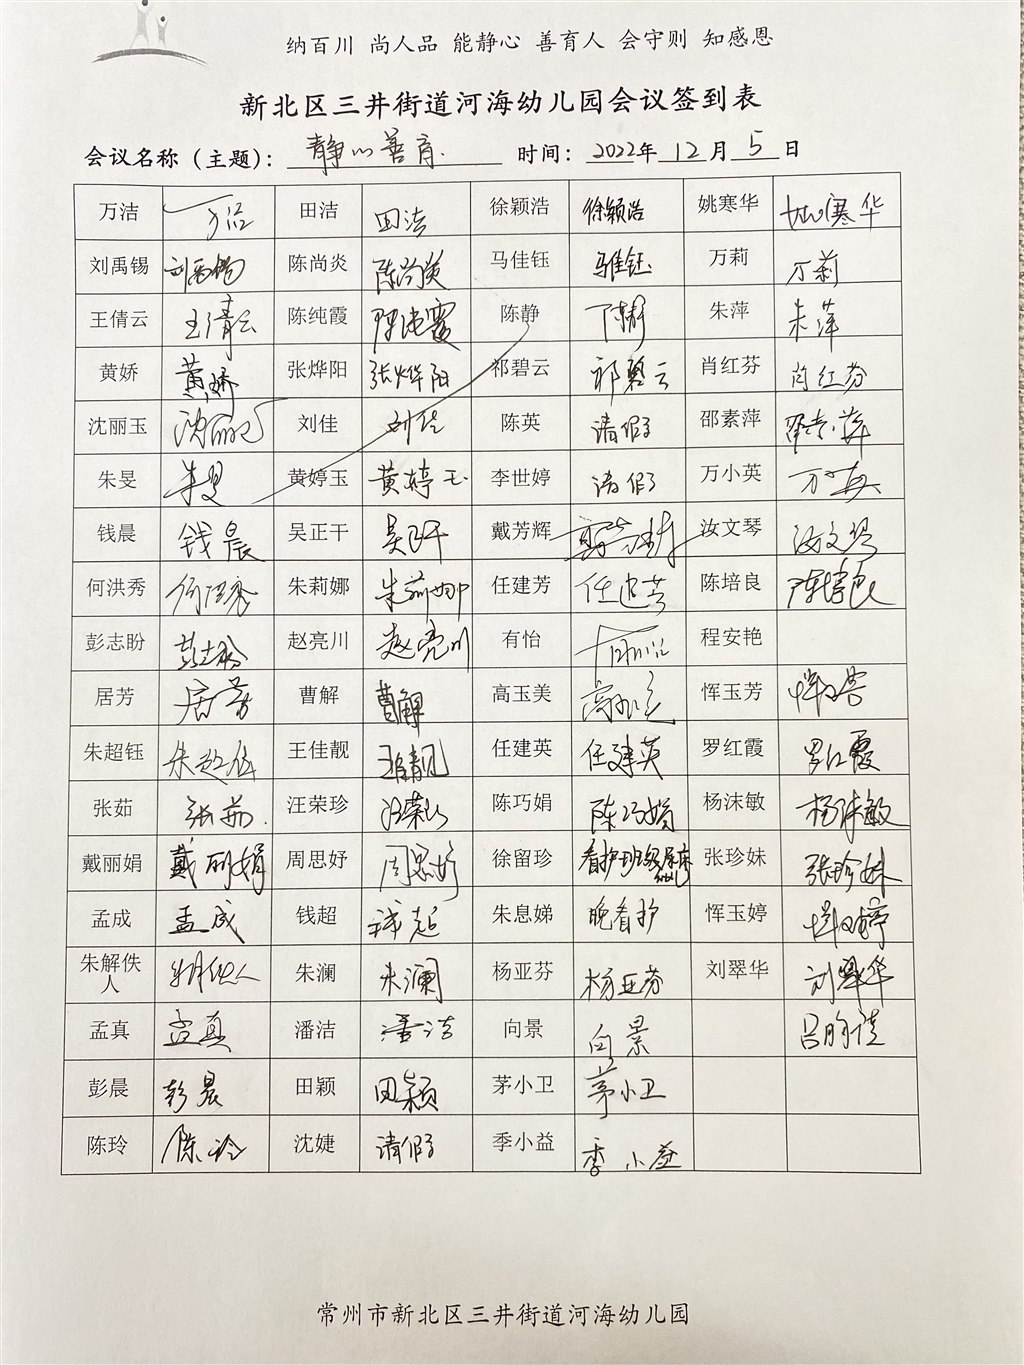 纳百川 尚人品 能静心 善育人 会守则 知感恩
新北区三井街道河海幼儿园会议签到表
会议名称（主题）：静心善育. 时间：2022年12月5日
万洁 万洁 田洁 田洁 徐颖浩 徐颖浩 姚寒华 姚寒华
刘禹锡 刘禹锡 陈尚炎 陈尚炎 马佳钰 马佳钰 万莉 万莉
王倩云 王倩云 陈纯霞 陈纯霞 陈静 陈静 朱萍 朱萍
黄娇 黄娇 张烨阳 张烨阳 祁碧云 祁碧云 肖红芬 肖红芬
沈丽玉 沈丽玉 刘佳 刘佳 陈英 请假 邵素萍 邵素萍
朱旻 朱旻 黄婷玉 黄婷玉 李世婷 请假 万小英 万小英
钱晨 钱晨 吴正干 吴正干 戴芳辉 汝文琴 汝文琴
何洪秀 何洪秀 朱莉娜 朱莉娜 任建芳 任建芳 陈培良 陈培良
彭志盼 彭志盼 赵亮川 赵亮川 有怡 有怡 程安艳
居芳 居芳 曹解 曹解 高玉美 高玉美 恽玉芳 恽玉芳
朱超钰 朱超钰 王佳靓 王佳靓 任建英 任建英 罗红霞 罗红霞
张茹 张茹. 汪荣珍 汪荣珍 陈巧娟 陈巧娟 杨沫敏 杨沫敏
戴丽娟 戴丽娟 周思妤 周思妤 徐留珍 看护班级 张珍妹 张珍妹
孟成 孟成 钱超 钱超 朱息娣 晚看护 恽玉婷 恽玉婷
朱解佚人 朱解佚人 朱澜 朱澜 杨亚芬 杨亚芬 刘翠华 刘翠华
孟真 孟真 潘洁 潘洁 向景 向景
彭晨 彭晨 田颖 田颖 茅小卫 茅小卫
陈玲 陈玲 沈婕 请假 季小益 季小益
常州市新北区三井街道河海幼儿园